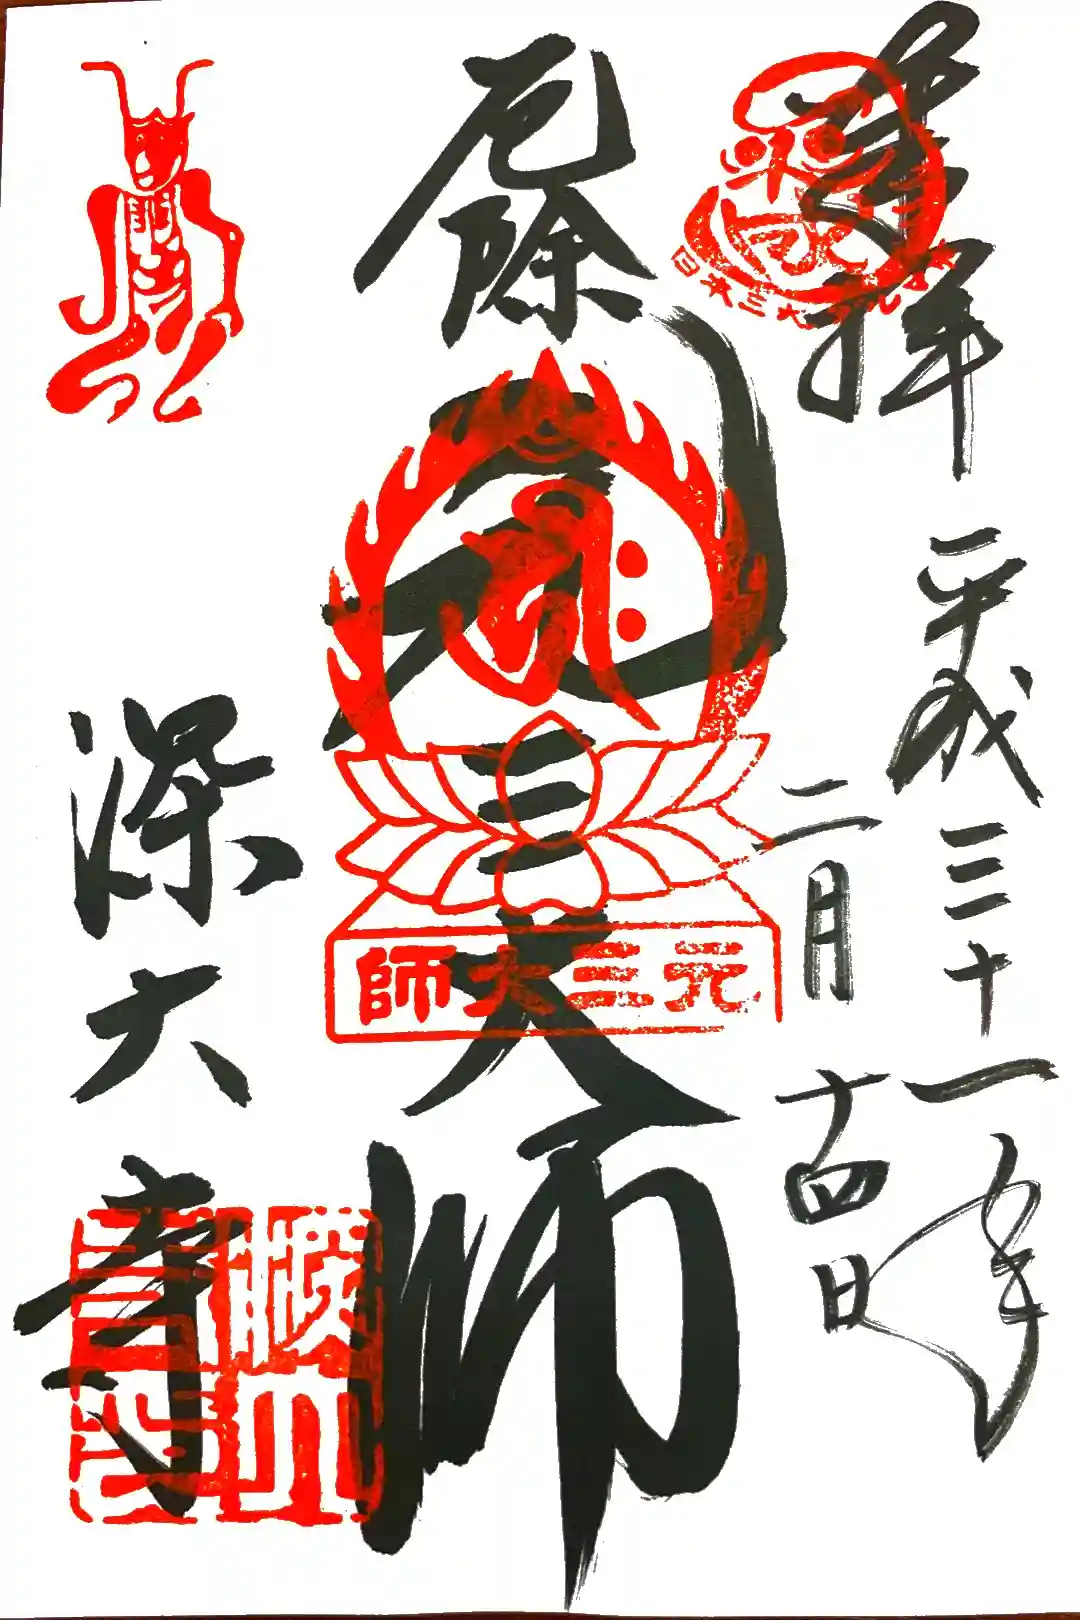 奉拝
平成三十一年
二月十四日
日本三大
厄除
元三大師
元三大師
深大寺
深大寺印